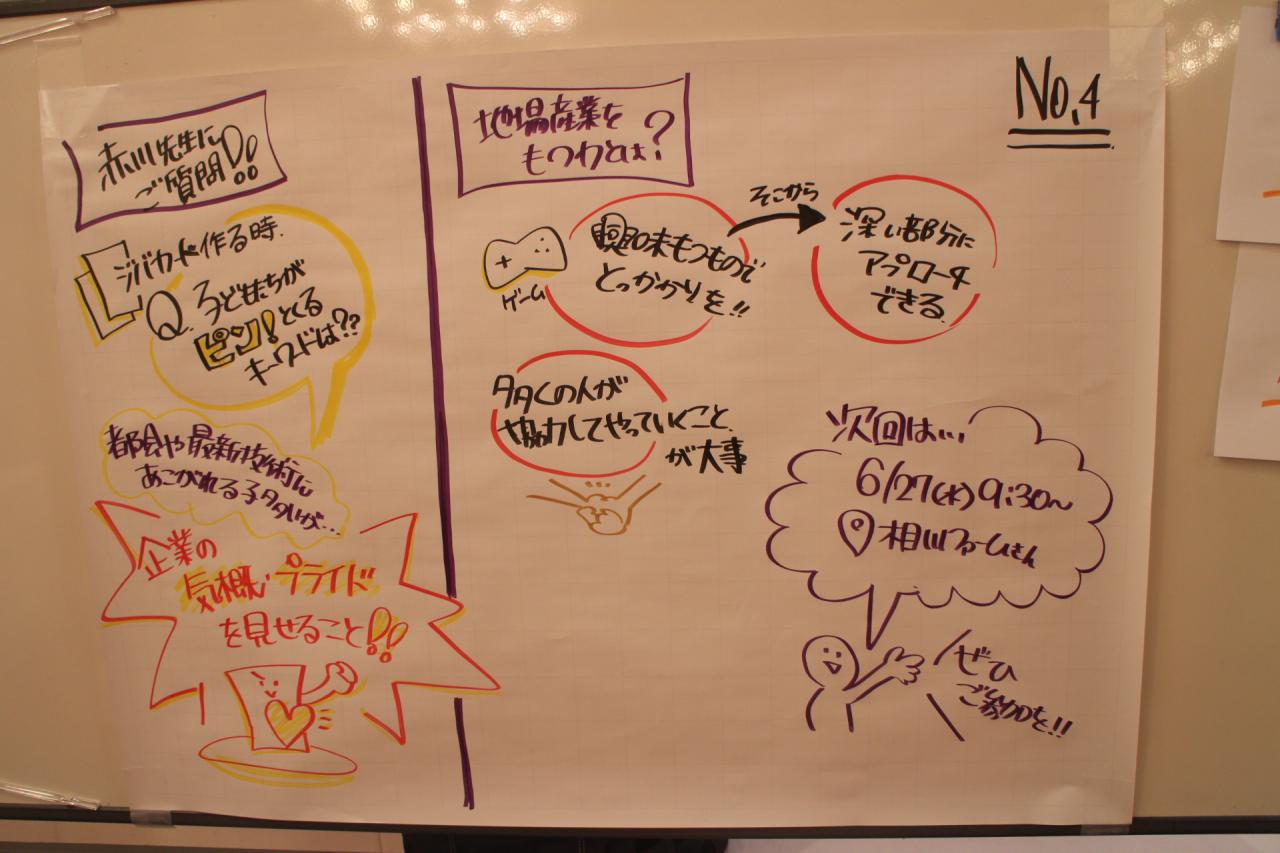 No.4
赤川先生に
ご質問!!
ジバカード作る時.
Q.子どもたちが
ピン!とくる
キーワードは??
都会や最新技術に
あこがれる子多いが...
企業の
気概・プライド
を見せること!!
地場産業を
もつわとは?
ゲーム
興味もつもので
とっかかりを!!
そこから
深い部分に
アプローチ
できる.
多くの人が
協力してやっていくこと
が大事
次回は...
6/27(水)9:30~
相川ファームさん
ぜひ
ご参加を!!